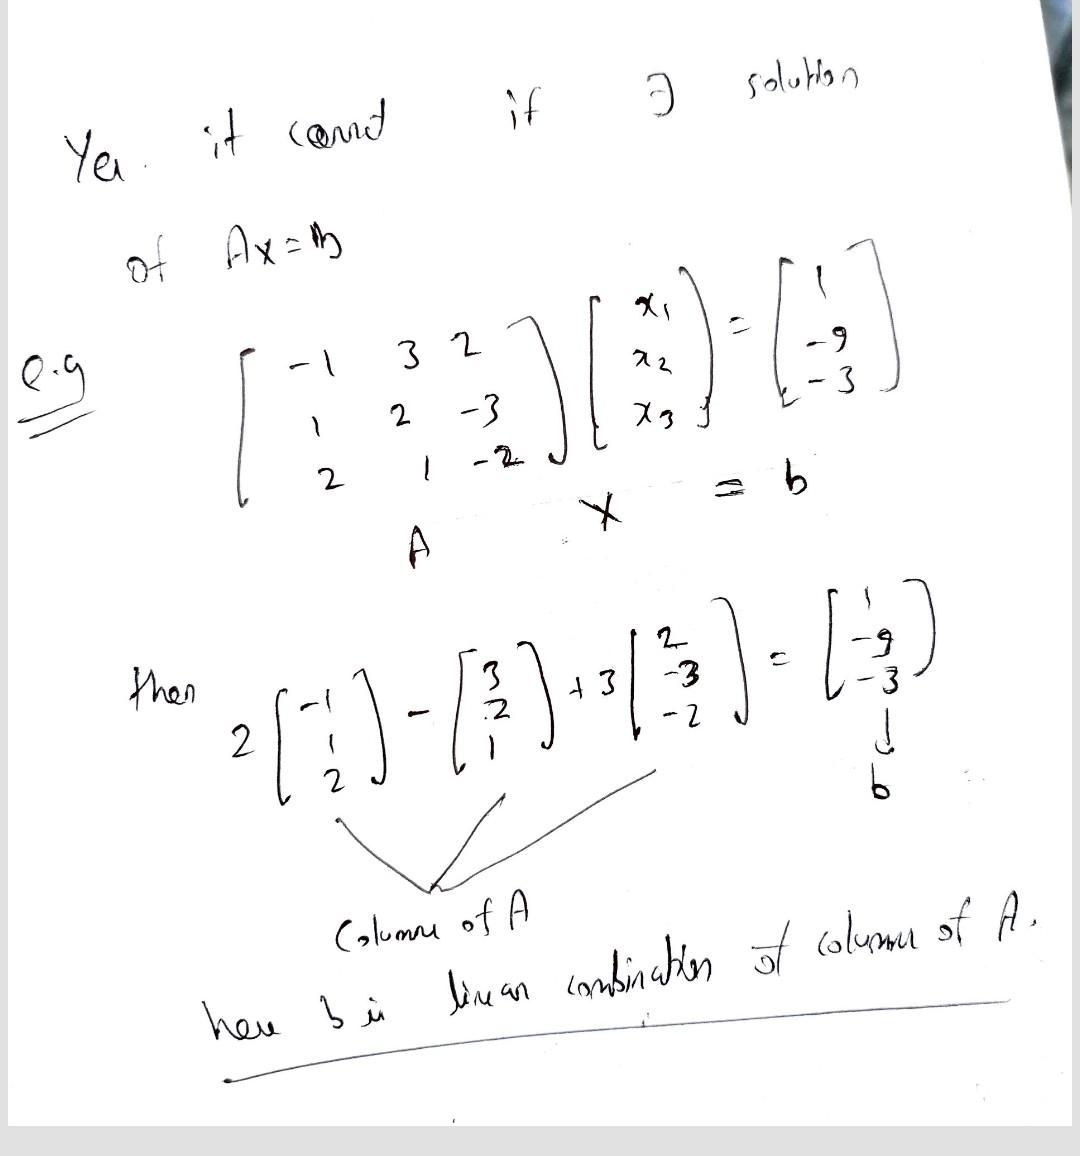 Yes. it correct if ∃ solution
of Ax = b
e.g [ -1 3 2 ; 1 2 -3 ; 2 1 -2 ] [ x1 ; x2 ; x3 ] = [ 1 ; -9 ; -3 ]
A X = b
then 2 [ -1 ; 1 ; 2 ] - [ 3 ; 2 ; 1 ] + 3 [ 2 ; -3 ; -2 ] = [ 1 ; -9 ; -3 ]
↓
b
Columns of A
here b is linear combination of columns of A.